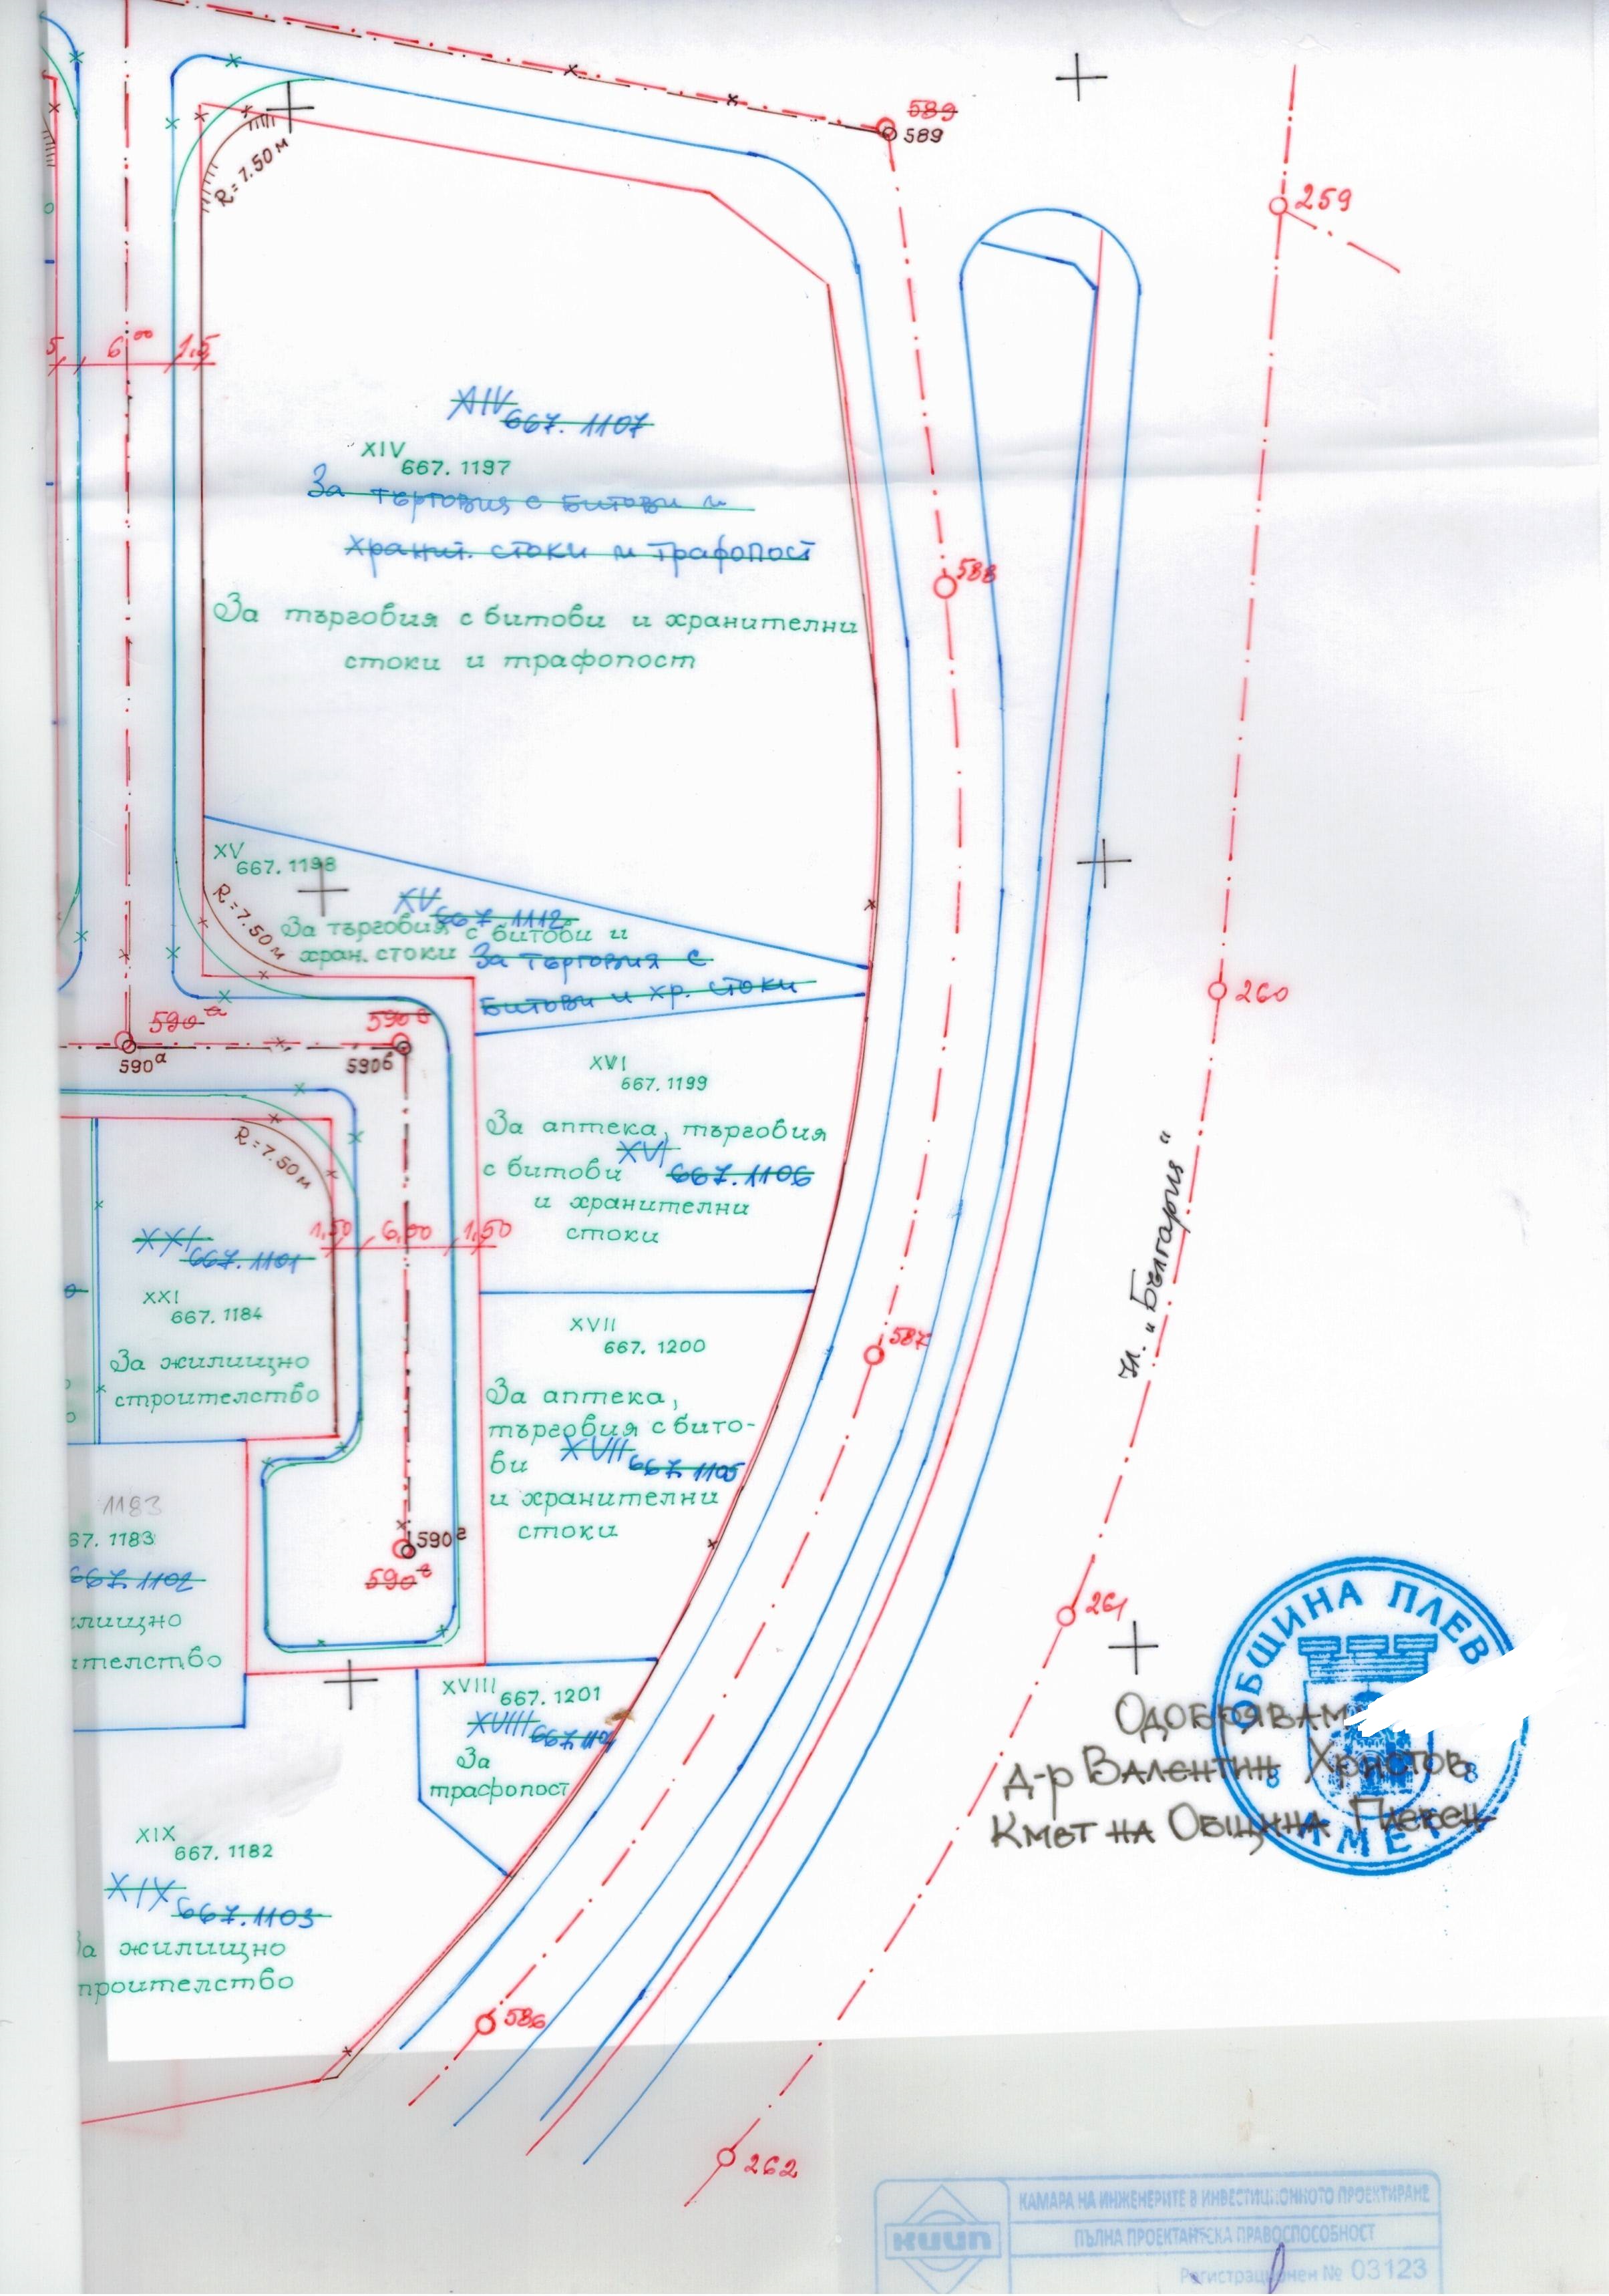 589
589
259
R=7.50 м
5
6.00
1.5
XIV
667. 1107
XIV
667. 1197
За търговия с битови и
хранит. стоки и трафопост
За търговия с битови и хранителни
стоки и трафопост
588
XV
667. 1198
XV
667. 1112
R=7.50 м
За търговия с битови и
хран. стоки
За търговия с
битови и хр. стоки
590а
590а
590б
590б
260
XVI
667. 1199
За аптека, търговия
с битови
XVI
667. 1106
и хранителни
стоки
R=7.50 м
1,50
6,00
1,50
XXI
667. 1101
XXI
667. 1184
За жилищно
строителство
ул. „България“
587
XVII
667. 1200
За аптека,
търговия с бито-
ви
XVII
667. 1105
и хранителни
стоки
1183
67. 1183
667. 1102
лищно
ителство
590г
590г
261
ОБЩИНА ПЛЕВ
КМЕТ
Одобрявам
д-р Валентин Христов
Кмет на Община Плевен
XVIII
667. 1201
XVIII
За
трафопост
XIX
667. 1182
XIX
667. 1103
За жилищно
троителство
586
262
КАМАРА НА ИНЖЕНЕРИТЕ В ИНВЕСТИЦИОННОТО ПРОЕКТИРАНЕ
КИИП
ПЪЛНА ПРОЕКТАНТСКА ПРАВОСПОСОБНОСТ
Регистрационен № 03123